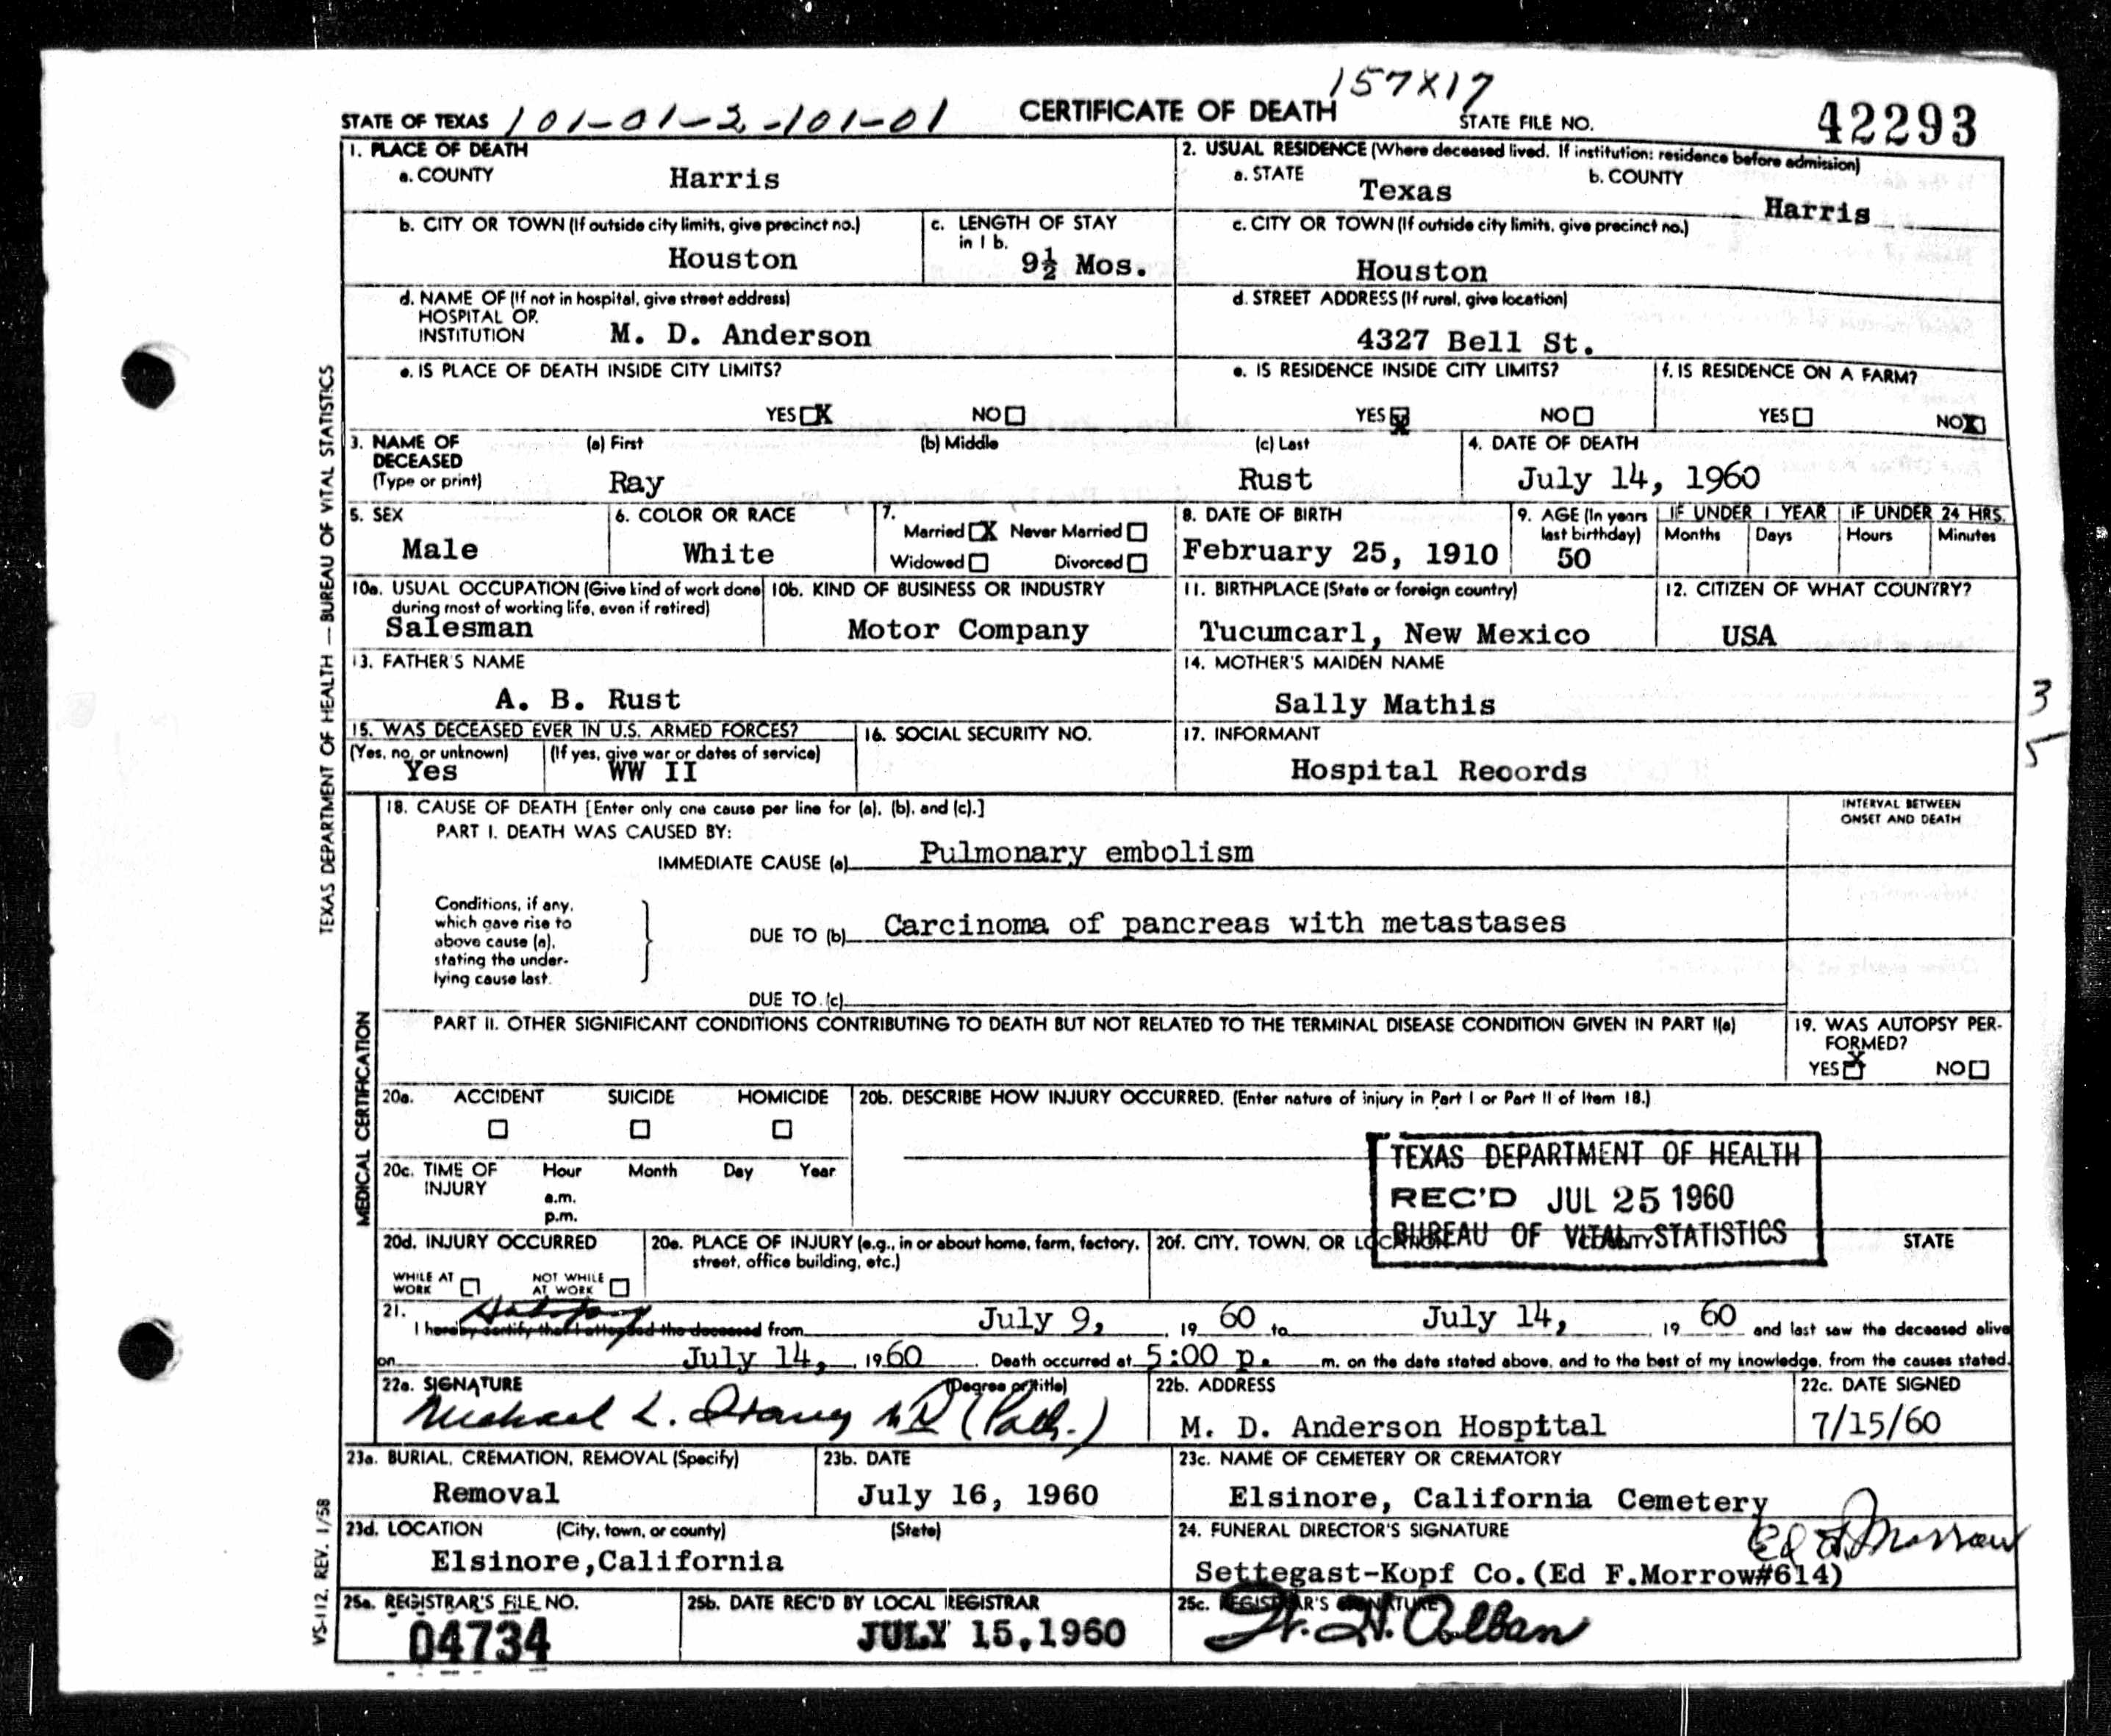 157X17
STATE OF TEXAS 101-01-2-101-01 CERTIFICATE OF DEATH STATE FILE NO. 42293
1. PLACE OF DEATH
a. COUNTY Harris
2. USUAL RESIDENCE (Where deceased lived. If institution: residence before admission)
a. STATE Texas b. COUNTY Harris
b. CITY OR TOWN (If outside city limits, give precinct no.) Houston
c. LENGTH OF STAY in 1 b. 9½ Mos.
c. CITY OR TOWN (If outside city limits, give precinct no.)
Houston
d. NAME OF (If not in hospital, give street address)
HOSPITAL OR
INSTITUTION M. D. Anderson
d. STREET ADDRESS (If rural, give location)
4327 Bell St.
e. IS PLACE OF DEATH INSIDE CITY LIMITS?
YES X NO
e. IS RESIDENCE INSIDE CITY LIMITS?
YES X NO
f. IS RESIDENCE ON A FARM?
YES NO X
3. NAME OF DECEASED (Type or print)
(a) First (b) Middle (c) Last
Ray Rust
4. DATE OF DEATH
July 14, 1960
5. SEX
Male
6. COLOR OR RACE
White
7.
Married X Never Married
Widowed Divorced
8. DATE OF BIRTH
February 25, 1910
9. AGE (In years last birthday)
50
IF UNDER 1 YEAR
Months Days
IF UNDER 24 HRS.
Hours Minutes
10a. USUAL OCCUPATION (Give kind of work done
during most of working life, even if retired)
Salesman
10b. KIND OF BUSINESS OR INDUSTRY
Motor Company
11. BIRTHPLACE (State or foreign country)
Tucumcarl, New Mexico
12. CITIZEN OF WHAT COUNTRY?
USA
13. FATHER'S NAME
A. B. Rust
14. MOTHER'S MAIDEN NAME
Sally Mathis
15. WAS DECEASED EVER IN U.S. ARMED FORCES?
(Yes, no, or unknown) (If yes, give war or dates of service)
Yes WW II
16. SOCIAL SECURITY NO.
17. INFORMANT
Hospital Records
3
5
18. CAUSE OF DEATH [Enter only one cause per line for (a), (b), and (c).]
INTERVAL BETWEEN
ONSET AND DEATH
PART I. DEATH WAS CAUSED BY:
IMMEDIATE CAUSE (a) Pulmonary embolism
Conditions, if any,
which gave rise to
above cause (a),
stating the under-
lying cause last.
DUE TO (b) Carcinoma of pancreas with metastases
DUE TO (c)
PART II. OTHER SIGNIFICANT CONDITIONS CONTRIBUTING TO DEATH BUT NOT RELATED TO THE TERMINAL DISEASE CONDITION GIVEN IN PART I(a)
19. WAS AUTOPSY PER-
FORMED?
YES X NO
20a. ACCIDENT SUICIDE HOMICIDE
20b. DESCRIBE HOW INJURY OCCURRED. (Enter nature of injury in Part I or Part II of Item 18.)
20c. TIME OF INJURY Hour Month Day Year
a.m.
p.m.
TEXAS DEPARTMENT OF HEALTH
REC'D JUL 25 1960
BUREAU OF VITAL STATISTICS
20d. INJURY OCCURRED
WHILE AT WORK NOT WHILE AT WORK
20e. PLACE OF INJURY (e.g., in or about home, farm, factory,
street, office building, etc.)
20f. CITY, TOWN, OR LOCATION COUNTY STATE
21. Autopsy
I hereby certify that I attended the deceased from July 9, 19 60 to July 14, 19 60 and last saw the deceased alive
on July 14, 1960. Death occurred at 5:00 p. m. on the date stated above, and to the best of my knowledge, from the causes stated.
22a. SIGNATURE (Degree or title)
Michael L. MD (Path.)
22b. ADDRESS
M. D. Anderson Hospital
22c. DATE SIGNED
7/15/60
23a. BURIAL, CREMATION, REMOVAL (Specify)
Removal
23b. DATE
July 16, 1960
23c. NAME OF CEMETERY OR CREMATORY
Elsinore, California Cemetery
23d. LOCATION (City, town, or county) (State)
Elsinore,California
24. FUNERAL DIRECTOR'S SIGNATURE
Ed F. Morrow
Settegast-Kopf Co.(Ed F.Morrow#614)
25a. REGISTRAR'S FILE NO.
04734
25b. DATE REC'D BY LOCAL REGISTRAR
JULY 15,1960
25c. REGISTRAR'S SIGNATURE
W. H. Alban
TEXAS DEPARTMENT OF HEALTH — BUREAU OF VITAL STATISTICS
MEDICAL CERTIFICATION
VS-112. REV. 1/58